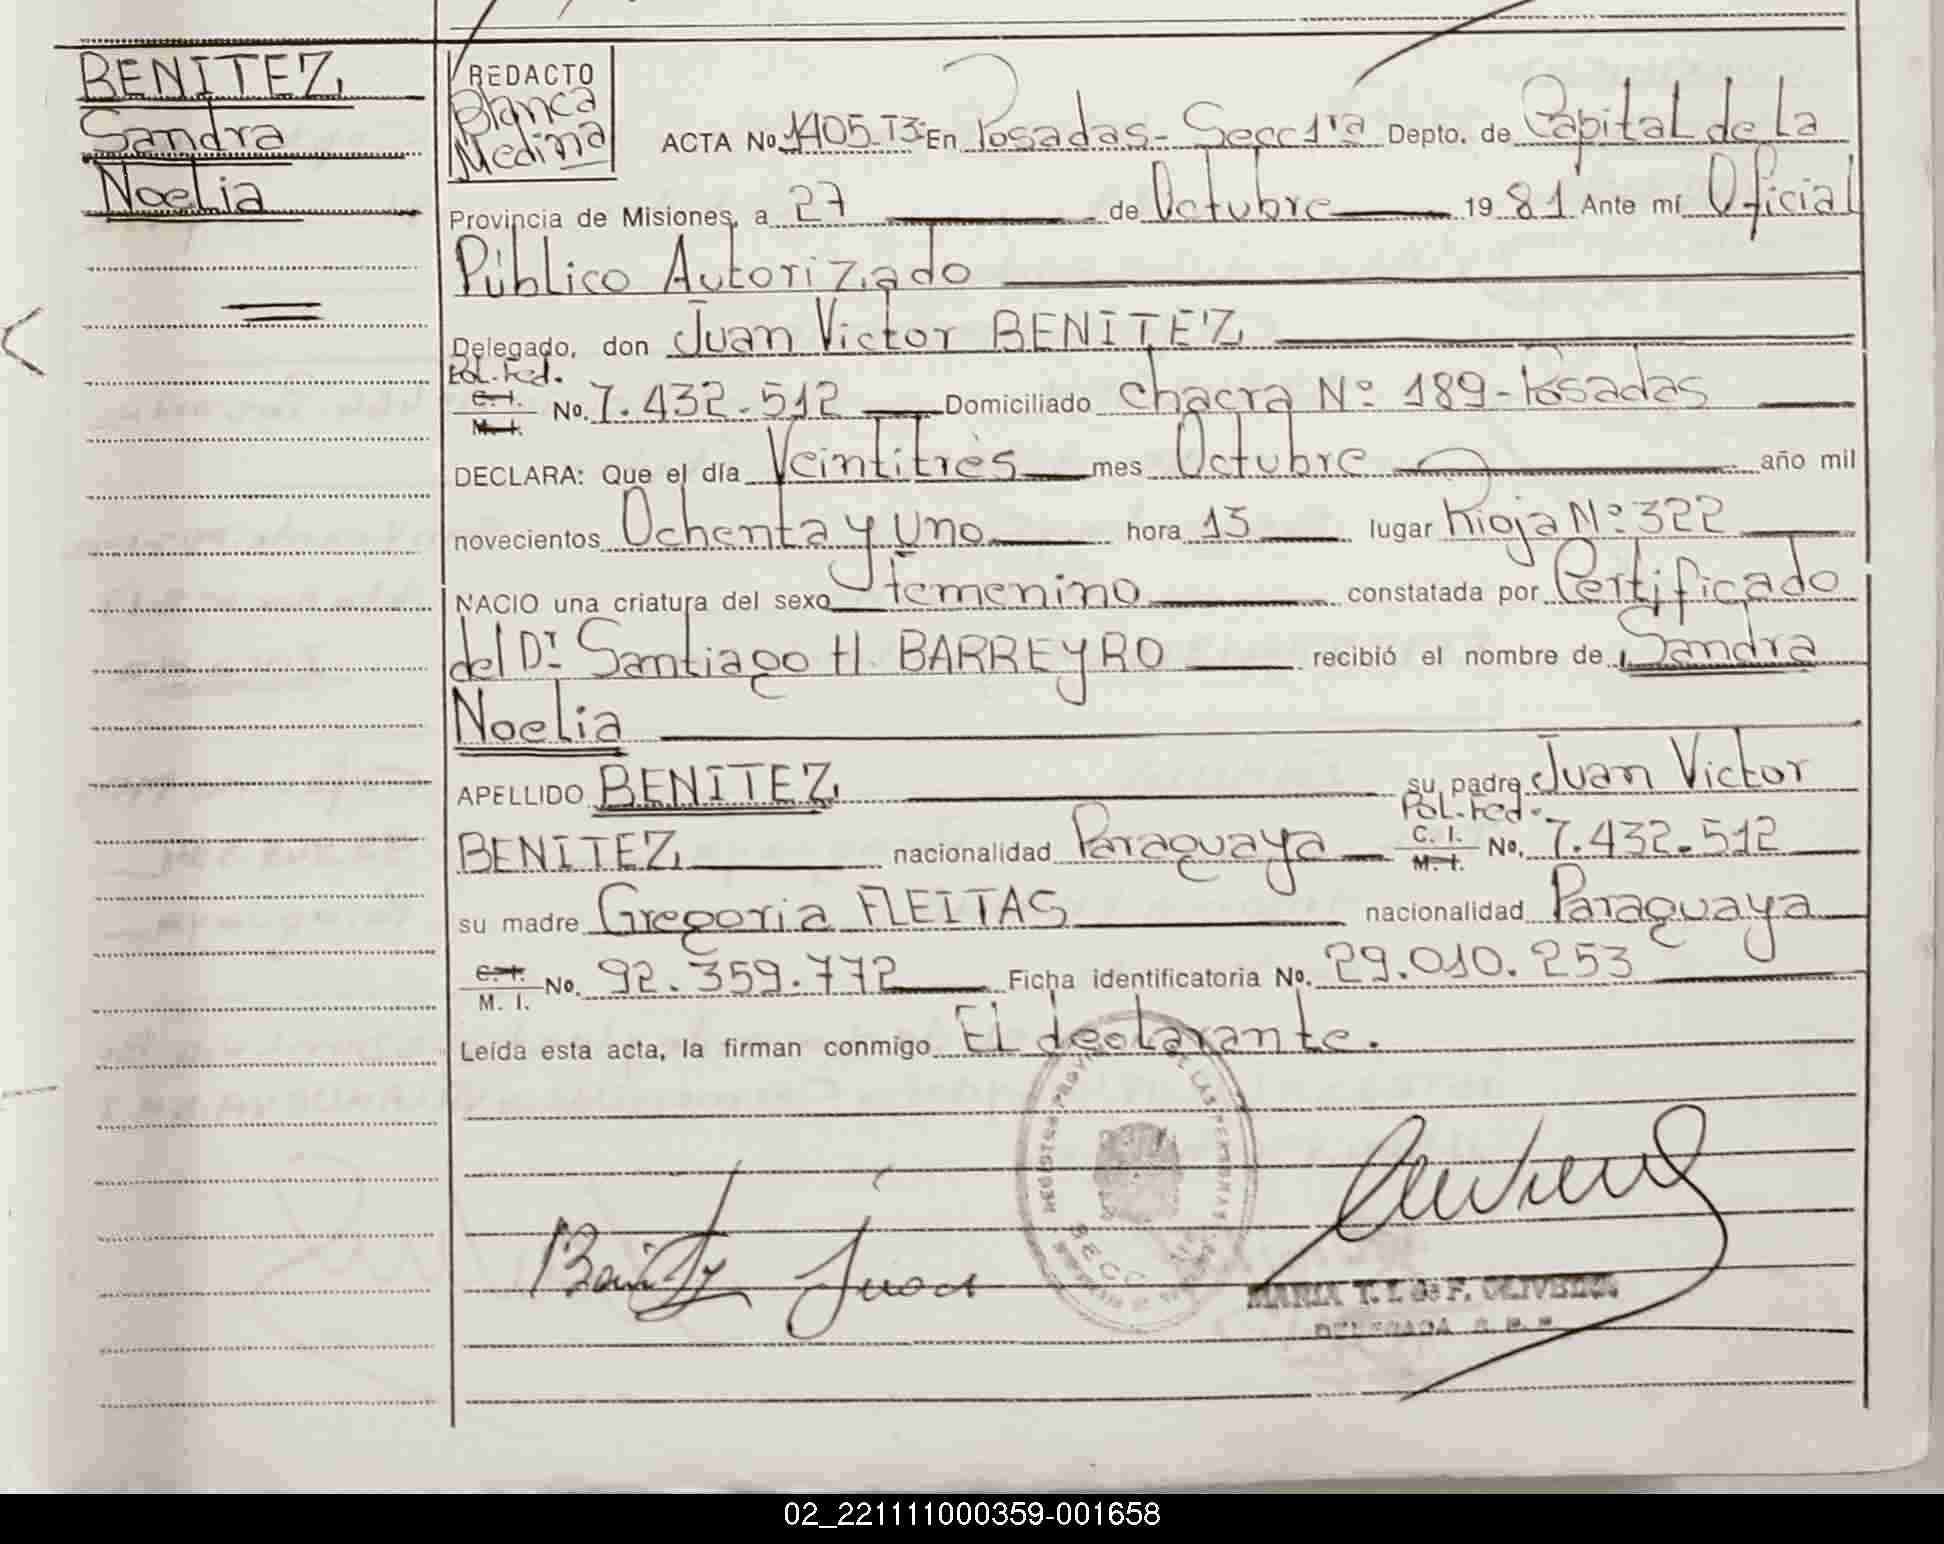 BENITEZ,
Sandra
Noelia
REDACTO
Blanca
Medina
ACTA No. 1405.T3: En Posadas - Secc 1ra Depto. de Capital de la
Provincia de Misiones, a 27 de Octubre 19 81 Ante mí Oficial
Público Autorizado
Delegado, don Juan Victor BENITEZ
Pol. Fed.
C. I.
M. I.
No. 7.432.512 Domiciliado chacra Nº 189 - Posadas
DECLARA: Que el día Veintitrés mes Octubre año mil
novecientos Ochenta y uno hora 13 lugar Rioja Nº 322
NACIO una criatura del sexo femenino constatada por Certificado
del Dr. Santiago H. BARREYRO recibió el nombre de Sandra
Noelia
APELLIDO BENITEZ su padre Juan Victor
Pol. Fed.
BENITEZ nacionalidad Paraguaya C. I. M. I. No. 7.432.512
su madre Gregoria FLEITAS nacionalidad Paraguaya
C. I. M. I. No. 92.359.772 Ficha identificatoria No. 29.010.253
Leída esta acta, la firman conmigo El declarante.
REGISTRO PROV DE LAS PERSONAS
SECC
Benitez Juan
MARIA T. I. de F. OLIVERA
DELEGADA
02_221111000359-001658